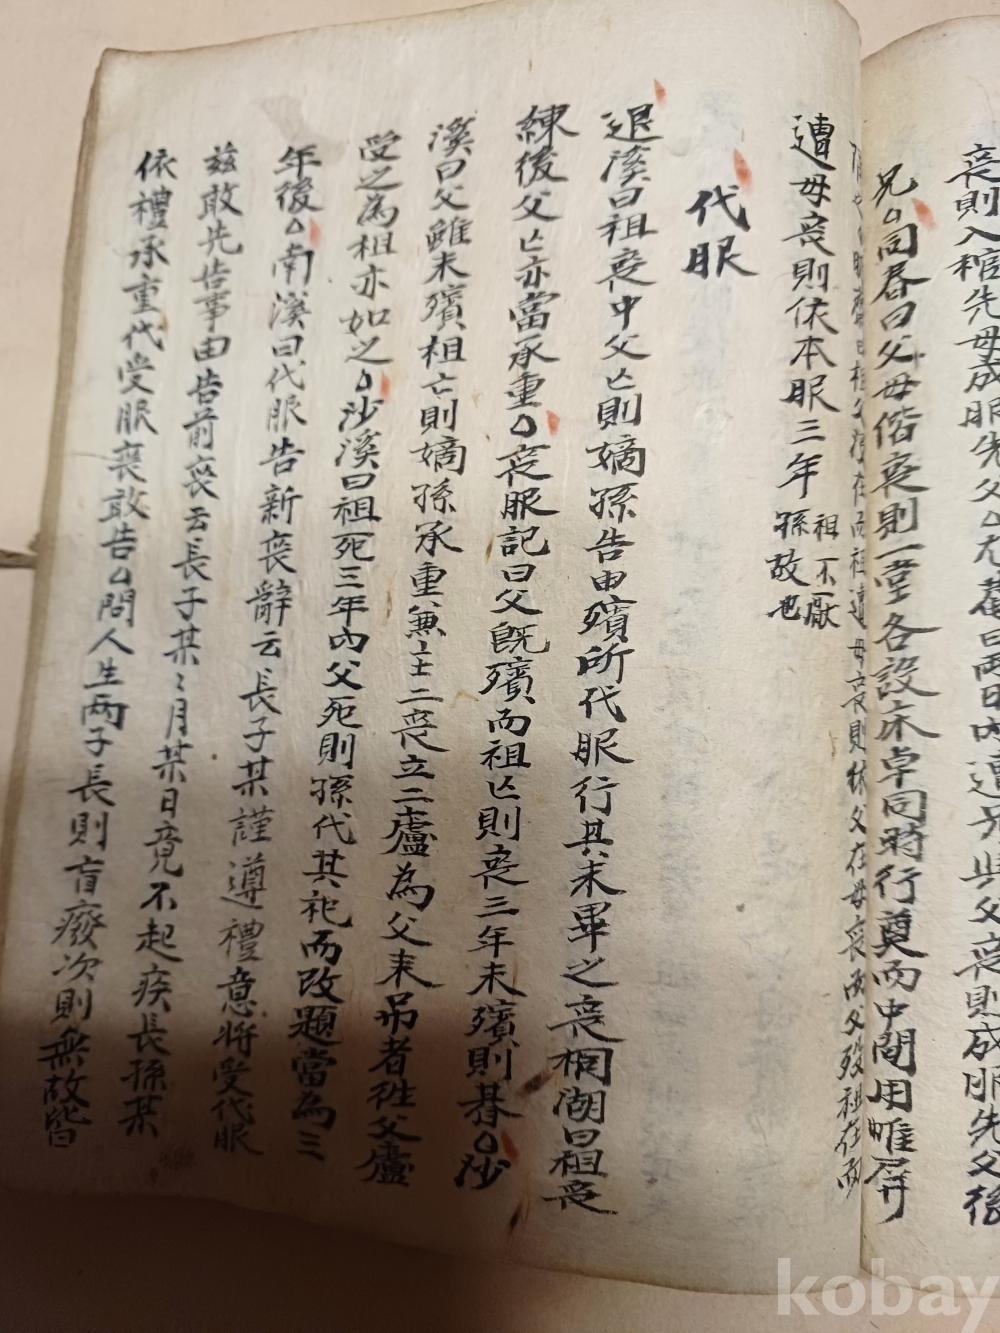 喪則入棺先母成服先父△尤菴曰兩日內遭母與父喪則成服先父後
兄△同春曰父母偕喪則一堂各設床卓同時行奠而中間用帷屏
祖父沒在而祖遭母喪則 父在母喪而父歿祖在而
遭母喪則依本服三年 祖不厭
孫故也
代服
退溪曰祖喪中父亡則嫡孫告由殯所代服行其未畢之喪桐湖曰祖喪
練後父亡亦當承重△喪服記曰父既殯而祖亡則喪三年未殯則朞△沙
溪曰父雖未殯祖亡則嫡孫承重兼主二喪立二廬為父来吊者徃父廬
受之為祖亦如之△沙溪曰祖死三年內父死則孫代其祀而改題當為三
年後△南溪曰代服告新喪辭云長子某謹遵禮意將受代服
玆敢先告事由告前喪云長子某〻月某日竟不起疾長孫某
依禮承重代受服喪敢告△問人生兩子長則盲癈次則無故皆
kobay